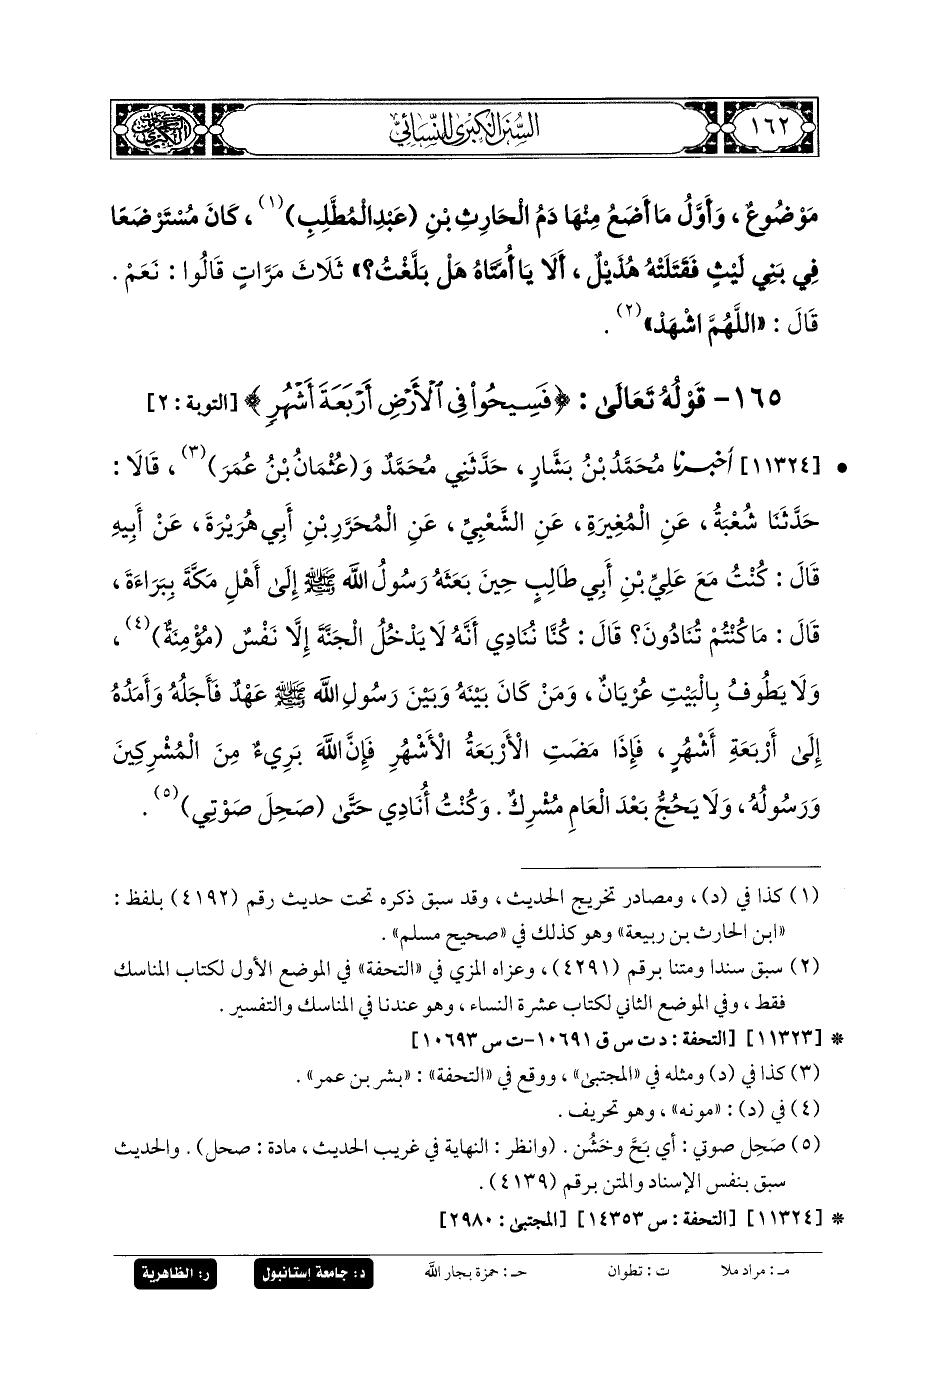 ١٦٢
السنن الكبرى للنسائي
مَوْضُوعٌ، وَأَوَّلُ مَا أَضَعُ مِنْهَا دَمُ الْحَارِثِ بْنِ (عَبْدِ الْمُطَّلِبِ)(١)، كَانَ مُسْتَرْضَعًا
فِي بَنِي لَيْثٍ فَقَتَلَتْهُ هُذَيْلٌ، أَلَا يَا أُمَّتَاهُ هَلْ بَلَّغْتُ؟» ثَلَاثَ مَرَّاتٍ قَالُوا: نَعَمْ.
قَالَ: «اللَّهُمَّ اشْهَدْ»(٢).
١٦٥- قَوْلُهُ تَعَالَى: ﴿فَسِيحُوا۟ فِى ٱلْأَرْضِ أَرْبَعَةَ أَشْهُرٍ﴾ [التوبة: ٢]
• [١١٣٢٤] أَخْبَرَنَا مُحَمَّدُ بْنُ بَشَّارٍ، حَدَّثَنِي مُحَمَّدٌ وَ(عُثْمَانُ بْنُ عُمَرَ)(٣)، قَالَا:
حَدَّثَنَا شُعْبَةُ، عَنِ الْمُغِيرَةِ، عَنِ الشَّعْبِيِّ، عَنِ الْمُحَرَّرِ بْنِ أَبِي هُرَيْرَةَ، عَنْ أَبِيهِ
قَالَ: كُنْتُ مَعَ عَلِيِّ بْنِ أَبِي طَالِبٍ حِينَ بَعَثَهُ رَسُولُ اللَّهِ ﷺ إِلَى أَهْلِ مَكَّةَ بِبَرَاءَةَ،
قَالَ: مَا كُنْتُمْ تُنَادُونَ؟ قَالَ: كُنَّا نُنَادِي أَنَّهُ لَا يَدْخُلُ الْجَنَّةَ إِلَّا نَفْسٌ (مُؤْمِنَةٌ)(٤)،
وَلَا يَطُوفُ بِالْبَيْتِ عُرْيَانٌ، وَمَنْ كَانَ بَيْنَهُ وَبَيْنَ رَسُولِ اللَّهِ ﷺ عَهْدٌ فَأَجَلُهُ وَأَمَدُهُ
إِلَى أَرْبَعَةِ أَشْهُرٍ، فَإِذَا مَضَتِ الْأَرْبَعَةُ الْأَشْهُرِ فَإِنَّ اللَّهَ بَرِيءٌ مِنَ الْمُشْرِكِينَ
وَرَسُولُهُ، وَلَا يَحُجُّ بَعْدَ الْعَامِ مُشْرِكٌ. وَكُنْتُ أُنَادِي حَتَّى (صَحِلَ صَوْتِي)(٥).
(١) كذا في (د)، ومصادر تخريج الحديث، وقد سبق ذكره تحت حديث رقم (٤١٩٢) بلفظ:
«ابن الحارث بن ربيعة» وهو كذلك في «صحيح مسلم».
(٢) سبق سندا ومتنا برقم (٤٢٩١)، وعزاه المزي في «التحفة» في الموضع الأول لكتاب المناسك
فقط، وفي الموضع الثاني لكتاب عشرة النساء، وهو عندنا في المناسك والتفسير.
* [١١٣٢٣] [التحفة: د ت س ق ١٠٦٩١-ت س ١٠٦٩٣]
(٣) كذا في (د) ومثله في «المجتبى»، ووقع في «التحفة»: «بشر بن عمر».
(٤) في (د): «مونه»، وهو تحريف.
(٥) صَحِل صوتي: أي بَحَّ وخَشُن. (وانظر: النهاية في غريب الحديث، مادة: صحل). والحديث
سبق بنفس الإسناد والمتن برقم (٤١٣٩).
* [١١٣٢٤] [التحفة: س ١٤٣٥٣] [المجتبى: ٢٩٨٠]
مـ: مراد ملا ت: تطوان حـ: حمزة بجار الله د: جامعة إستانبول ر: الظاهرية